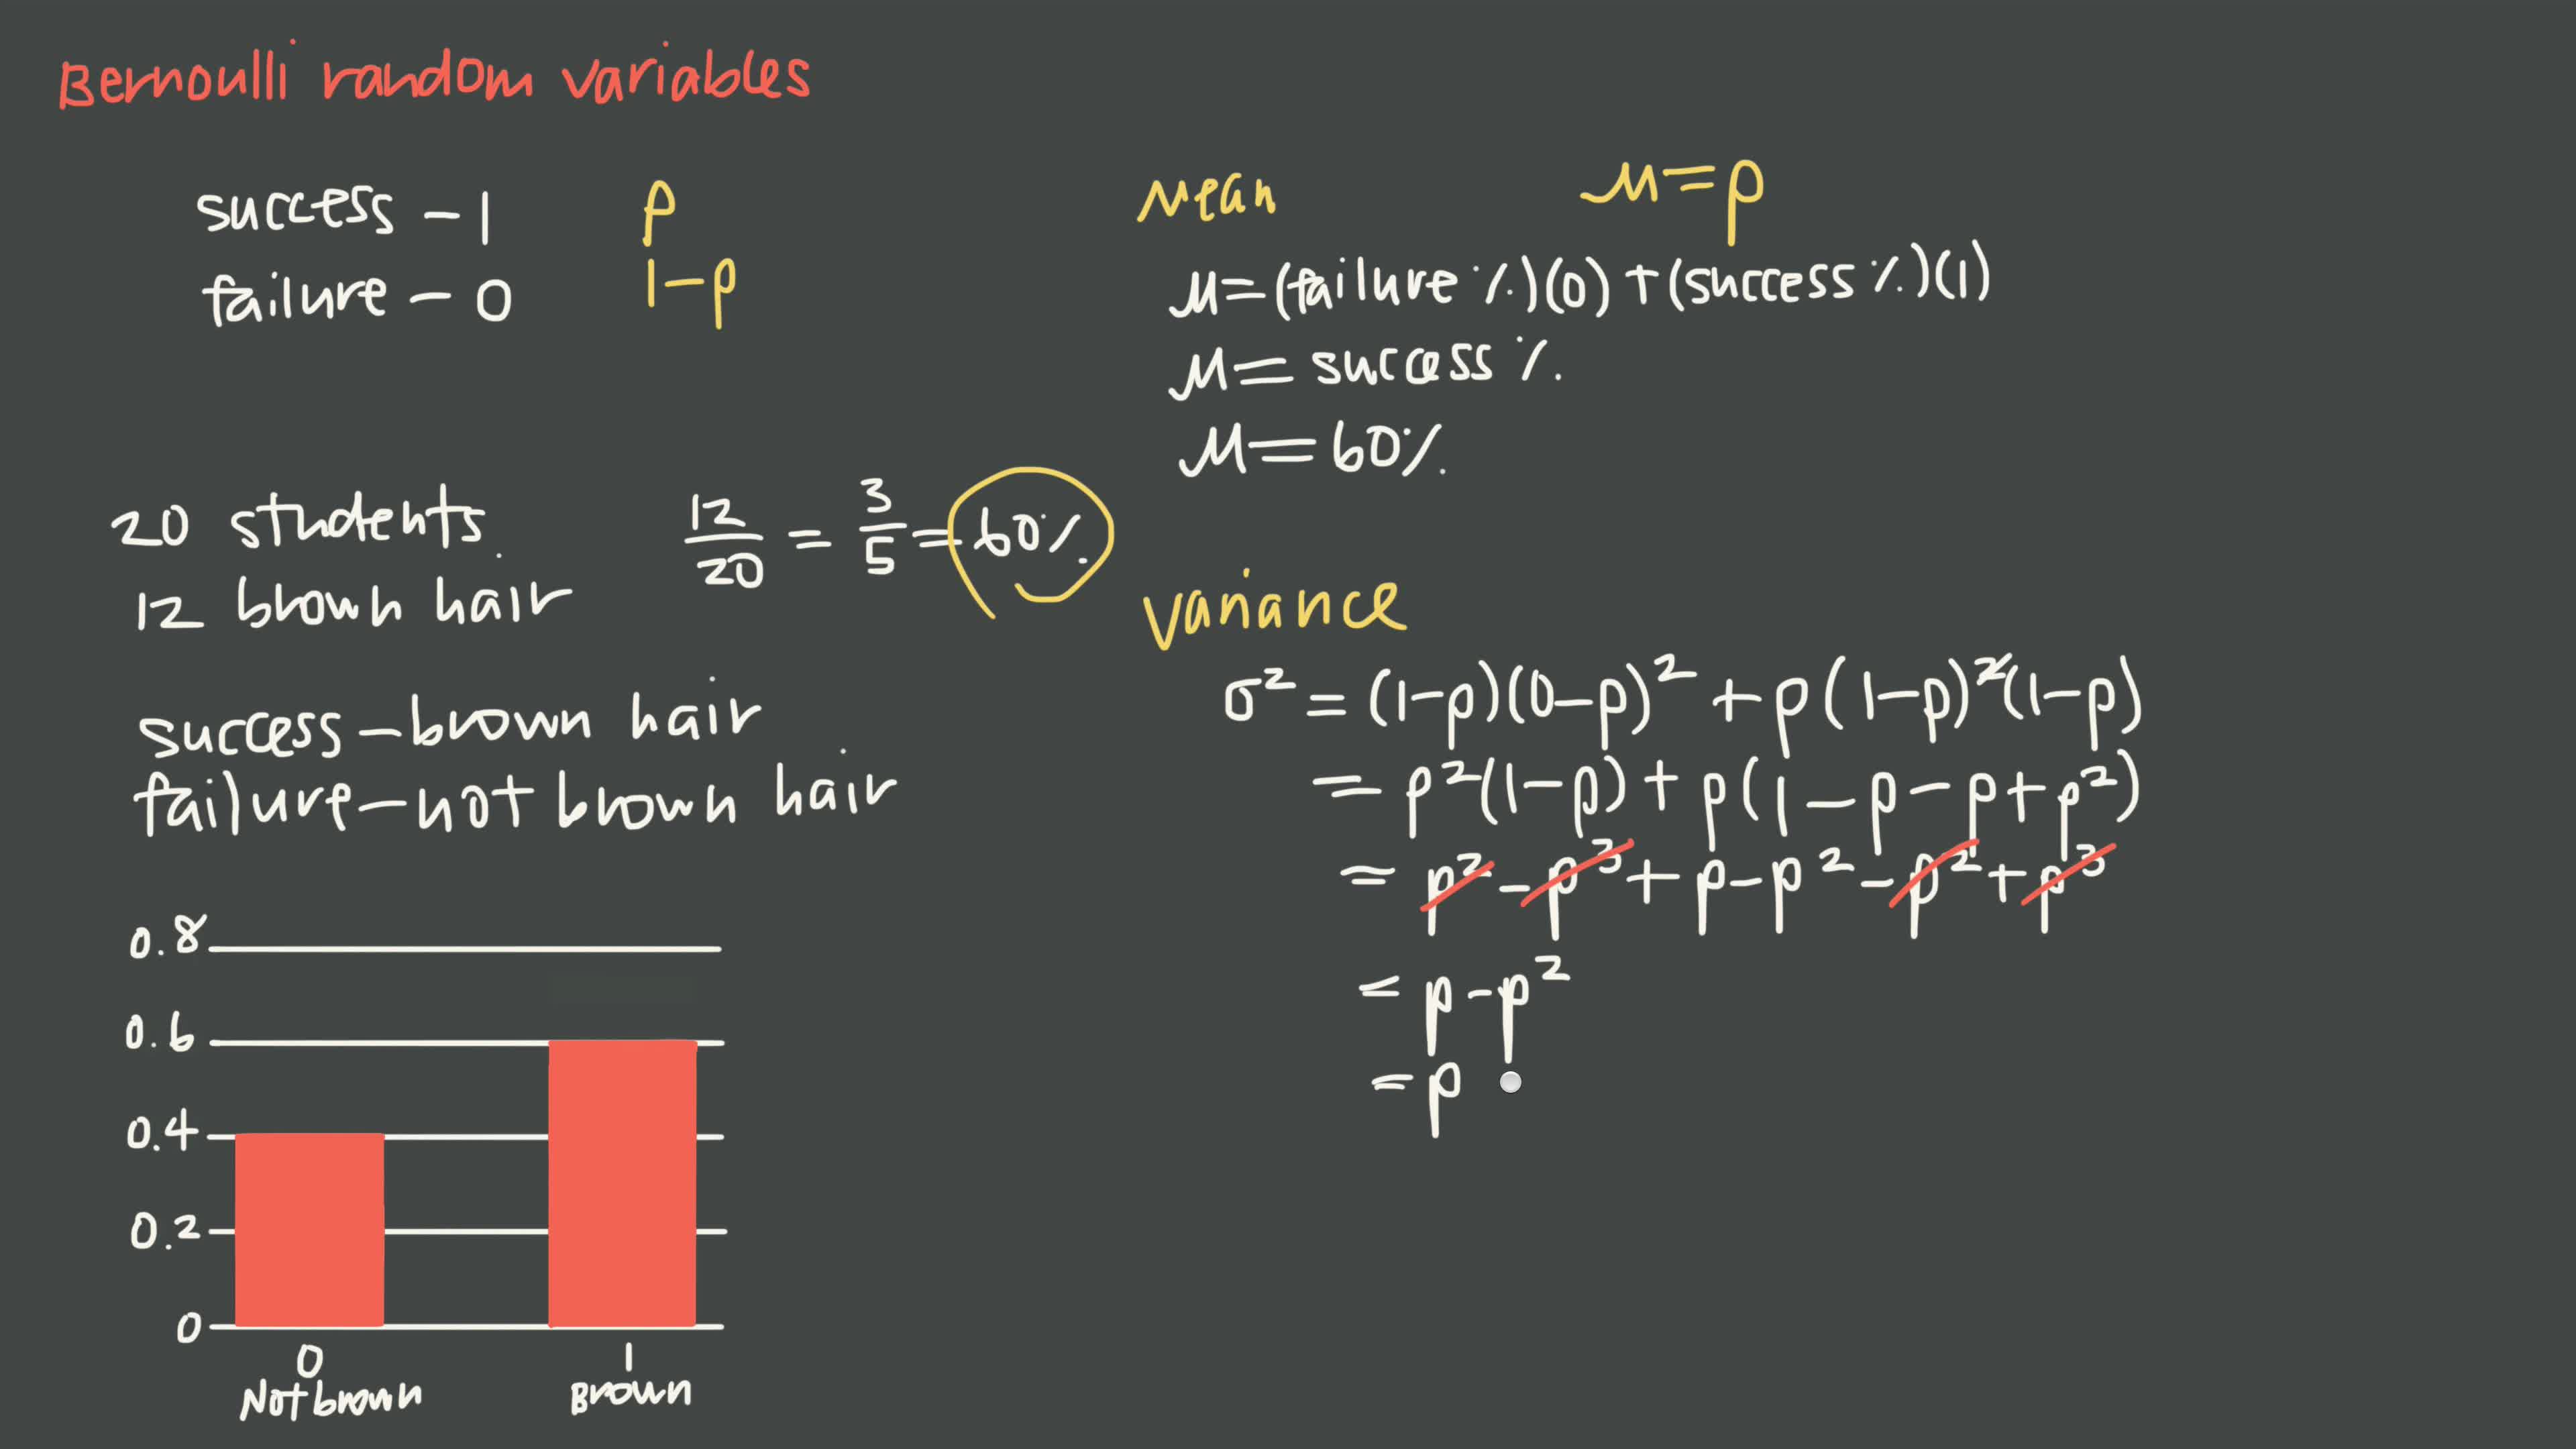 Bernoulli random variables
success – 1 p
failure – 0 1-p
20 students
12 brown hair
12/20 = 3/5 = 60%
success – brown hair
failure – not brown hair
0.8
0.6
0.4
0.2
0
0 1
Not brown Brown
Mean μ=p
μ=(failure %)(0)+(success %)(1)
μ= success %
μ= 60%
variance
σ² = (1-p)(0-p)² + p(1-p)²(1-p)
= p²(1-p) + p(1-p-p+p²)
= p²-p³+p-p²-p²+p³
= p-p²
= p